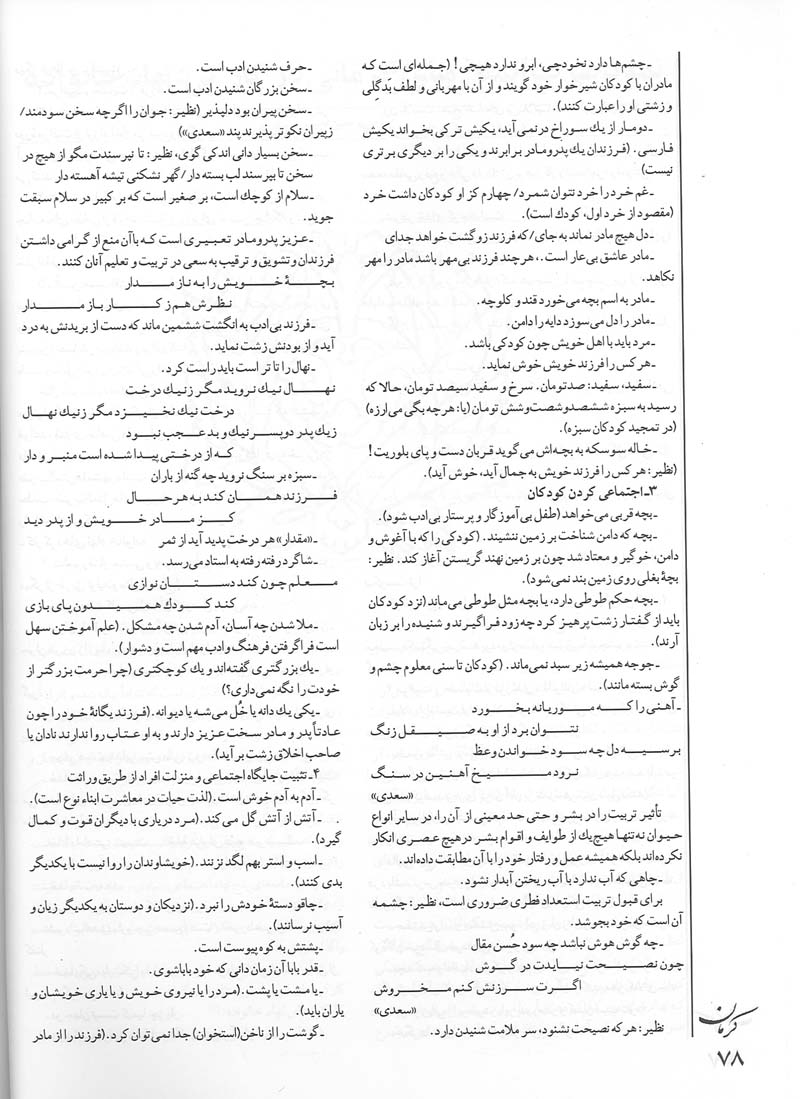 ـ چشم‌ها دارد نخودچی، ابرو ندارد هیچی! (جمله‌ای است که
مادران با کودکان شیرخوار خود گویند و از آن با مهربانی و لطف بَدگِلی
و زشتی او را عبارت کنند).
ـ دو مار از یك سوراخ در نمی‌آید، یکیش ترکی بخواند یکیش
فارسی. (فرزندان یك پدر و مادر برابرند و یکی را بر دیگری برتری
نیست)
ـ غم خرد را خرد نتوان شمرد/ چهارم کز او کودکان داشت خرد
(مقصود از خرد اول، کودك است).
ـ دل هیچ مادر نماند به جای/ که فرزند زو گشت خواهد جدای
ـ مادر عاشق بی‌عار است.، هر چند فرزند بی‌مهر باشد مادر را مهر
نکاهد.
ـ مادر به اسم بچه می‌خورد قند و کلوچه.
ـ مادر را دل می‌سوزد دایه را دامن.
ـ مرد باید با اهل خویش چون کودکی باشد.
ـ هر کس را فرزند خویش خوش نماید.
ـ سفید، سفید: صد تومان. سرخ و سفید سیصد تومان، حالا که
رسید به سبزه ششصد و شصت و شش تومان (یا: هر چه بگی می‌ارزه)
(در تمجید کودکان سبزه).
ـ خاله سوسکه به بچه‌اش می‌گوید قربان دست و پای بلوریت!
(نظیر: هر کس را فرزند خویش به جمال آید، خوش آید).
۳ـ اجتماعی کردن کودکان
ـ بچه قربی می‌خواهد (طفل بی‌آموزگار و پرستار بی‌ادب شود).
ـ بچه که دامن شناخت بر زمین ننشیند. (کودکی را که با آغوش و
دامن، خوگیر و معتاد شد چون بر زمین نهند گریستن آغاز کند. نظیر:
بچۀ بغلی روی زمین بند نمی‌شود).
ـ بچه حکم طوطی دارد، یا بچه مثل طوطی می‌ماند (نزد کودکان
باید از گفتار زشت پرهیز کرد چه زود فراگیرند و شنیده را بر زبان
آرند).
ـ جوجه همیشه زیر سبد نمی‌ماند. (کودکان تا سنی معلوم چشم و
گوش بسته مانند).
ـ آهنی را که موریانه بخورد
نتوان برد از او به صیقل زنگ
بر سیه دل چه سود خواندن وعظ
نرود میخ آهنین در سنگ
«سعدی»
تأثیر تربیت را در بشر و حتی حد معینی از آن را، در سایر انواع
حیوان نه تنها هیچ‌یك از طوایف و اقوام بشر در هیچ عصری انکار
نکرده‌اند بلکه همیشه عمل و رفتار خود را با آن مطابقت داده‌اند.
ـ چاهی که آب ندارد با آب ریختن آبدار نشود.
برای قبول تربیت استعداد فطری ضروری است، نظیر: چشمه
آن است که خود بجوشد.
ـ چه گوش هوش نباشد چه سود حُسن مقال
چون نصیحت نیایدت در گوش
اگرت سرزنش کنم مخروش
«سعدی»
نظیر: هر که نصیحت نشنود، سر ملامت شنیدن دارد.
ـ حرف شنیدن ادب است.
ـ سخن بزرگان شنیدن ادب است.
ـ سخن پیران بود دلپذیر (نظیر: جوان را اگر چه سخن سودمند/
ز پیران نکوتر پذیرند پند «سعدی»)
ـ سخن بسیار دانی اندکی گوی، نظیر: تا نپرسندت مگو از هیچ در
سخن تا بپرسند لب بسته دار/ گهر نشکنی تیشه آهسته دار
ـ سلام از کوچك است، بر صغیر است که بر کبیر در سلام سبقت
جوید.
ـ عزیز پدر و مادر تعبیری است که با آن منع از گرامی داشتن
فرزندان و تشویق و ترقیب به سعی در تربیت و تعلیم آنان کنند.
بچۀ خویش را به ناز مدار
نظرش هم ز کار باز مدار
ـ فرزند بی‌ادب به انگشت ششمین ماند که دست از بریدنش به درد
آید و از بودنش زشت نماید.
ـ نهال را تا تر است باید راست کرد.
نهال نیك نروید مگر ز نیك درخت
درخت نیك نخیزد مگر ز نیك نهال
ز یك پدر دو پسر نیك و بد عجب نبود
که از درختی پیدا شده است منبر و دار
ـ سبزه بر سنگ نروید چه گنه از باران
فرزند همان کند به هر حال
کز مادر خویش و از پدر دید
ـ «مقدار» هر درخت پدید آید از ثمر
ـ شاگرد رفته رفته به استاد می‌رسد.
معلم چون کند دستان نوازی
کند کودك همیدون پای بازی
ـ ملا شدن چه آسان، آدم شدن چه مشکل. (علم آموختن سهل
است فرا گرفتن فرهنگ و ادب مهم است و دشوار).
ـ یك بزرگتری گفته‌اند و یك کوچکتری (چرا حرمت بزرگتر از
خودت را نگه نمی‌داری؟)
ـ یکی یك دانه یا خُل می‌شه یا دیوانه. (فرزند یگانۀ خود را چون
عادتاً پدر و مادر سخت عزیز دارند و به او عتاب روا ندارند نادان یا
صاحب اخلاق زشت برآید).
۴ـ تثبیت جایگاه اجتماعی و منزلت افراد از طریق وراثت
ـ آدم به آدم خوش است. (لذت حیات در معاشرت ابناء نوع است).
ـ آتش از آتش گل می‌کند. (مرد در یاری با دیگران قوت و کمال
گیرد).
ـ اسب و استر بهم لگد نزنند. (خویشاوندان را روا نیست با یکدیگر
بدی کنند).
ـ چاقو دستۀ خودش را نبرد. (نزدیکان و دوستان به یکدیگر زیان و
آسیب نرسانند).
ـ پشتش به کوه پیوست است.
ـ قدر بابا آن زمان دانی که خود باباشوی.
ـ یا مشت یا پشت. (مرد را یا نیروی خویش و یا یاری خویشان و
یاران باید).
ـ گوشت را از ناخن (استخوان) جدا نمی‌توان کرد. (فرزند را از مادر
کرمان
۷۸